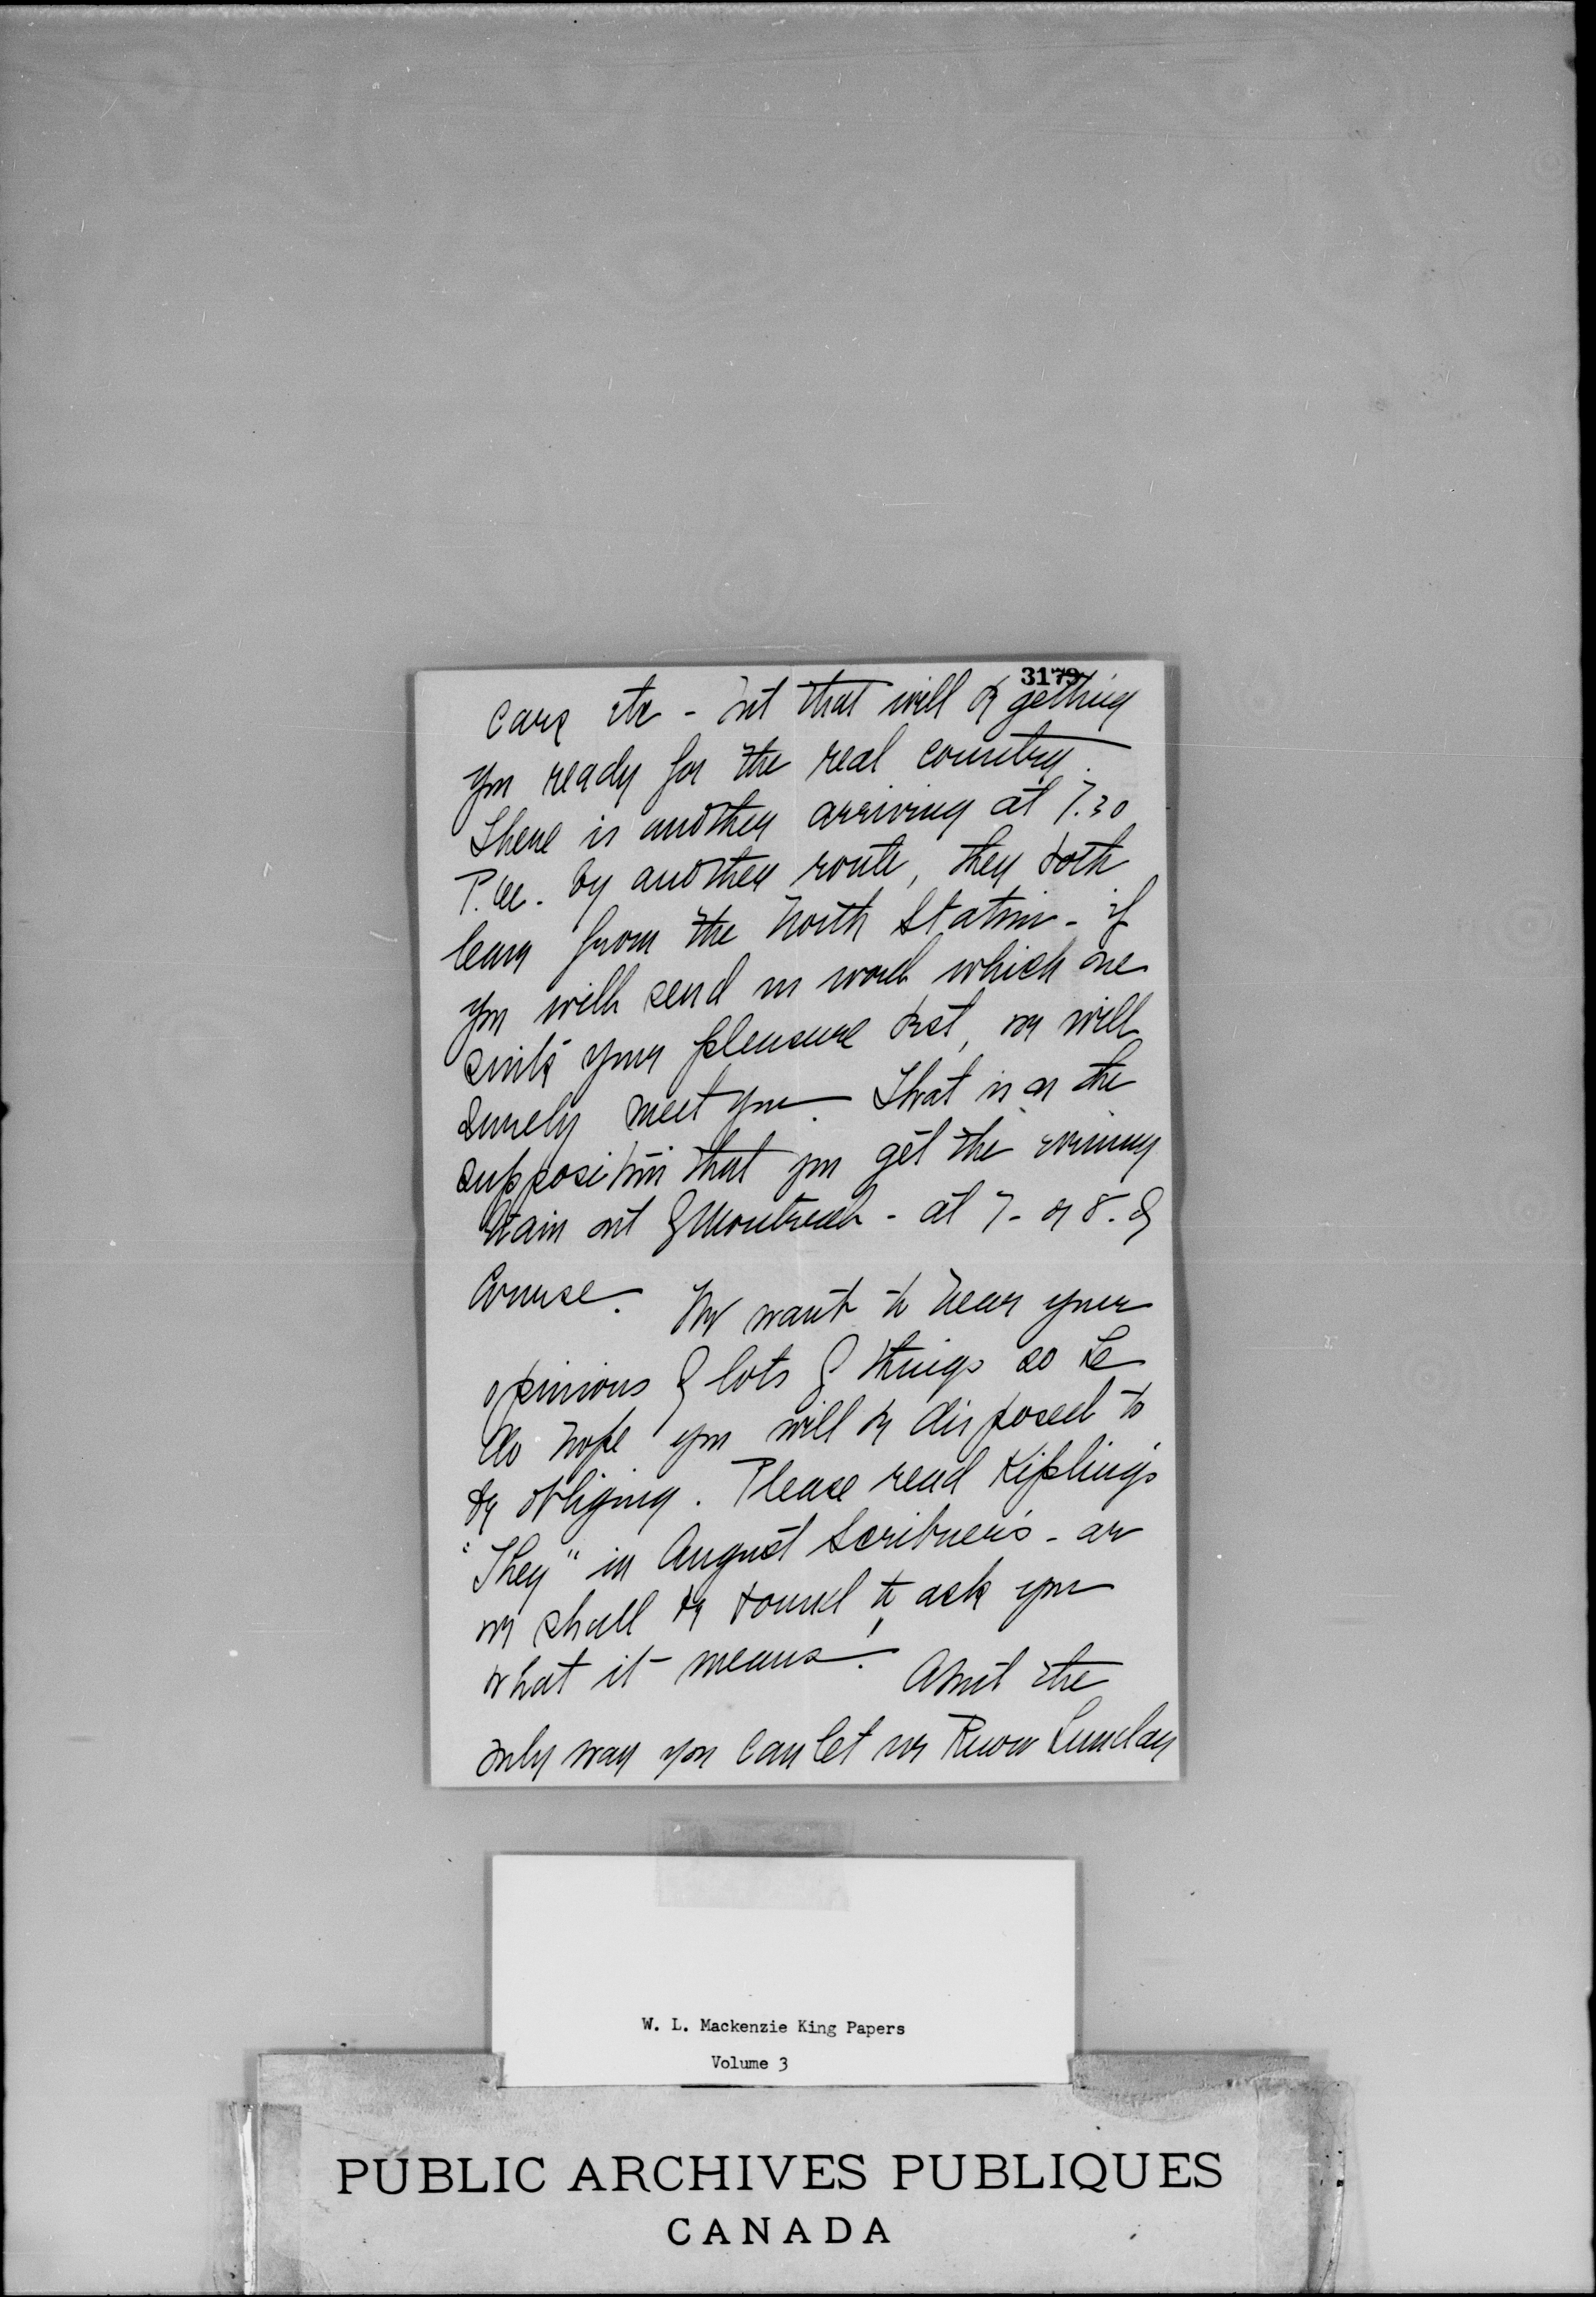 3179
cars etc - but that will be getting
you ready for the real country.
There is another arriving at 7.30
P.M. by another route, they both
leave from the North Station - if
you will send us word which one
suits your pleasure best, we will
surely meet you. That is on the
supposition that you get the evening
train out of Montreal - at 7 - or 8. of
Course. We want to hear your
opinions of lots of things so
do hope you will be disposed to
be obliging. Please read Kipling's
"They" in August Scribner's - or
we shall be bound to ask you
what it means! About the
only way you can let us know Sunday
W. L. Mackenzie King Papers
Volume 3
PUBLIC ARCHIVES PUBLIQUES
CANADA